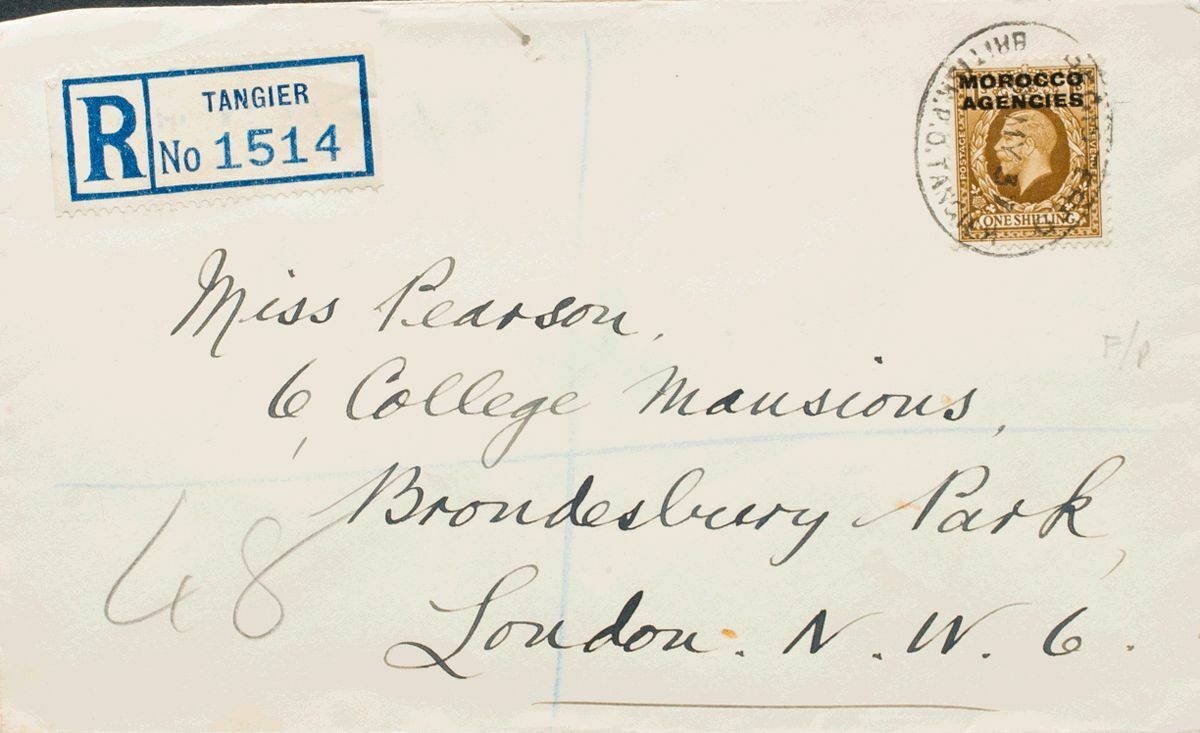 R
TANGIER
No 1514
MOROCCO
AGENCIES
POSTAGE
REVENUE
ONE SHILLING
BRITISH P.O. TANGIER
Miss Pearson,
6, College Mansions,
Brondesbury Park,
London. N. W. 6.
48
F/P